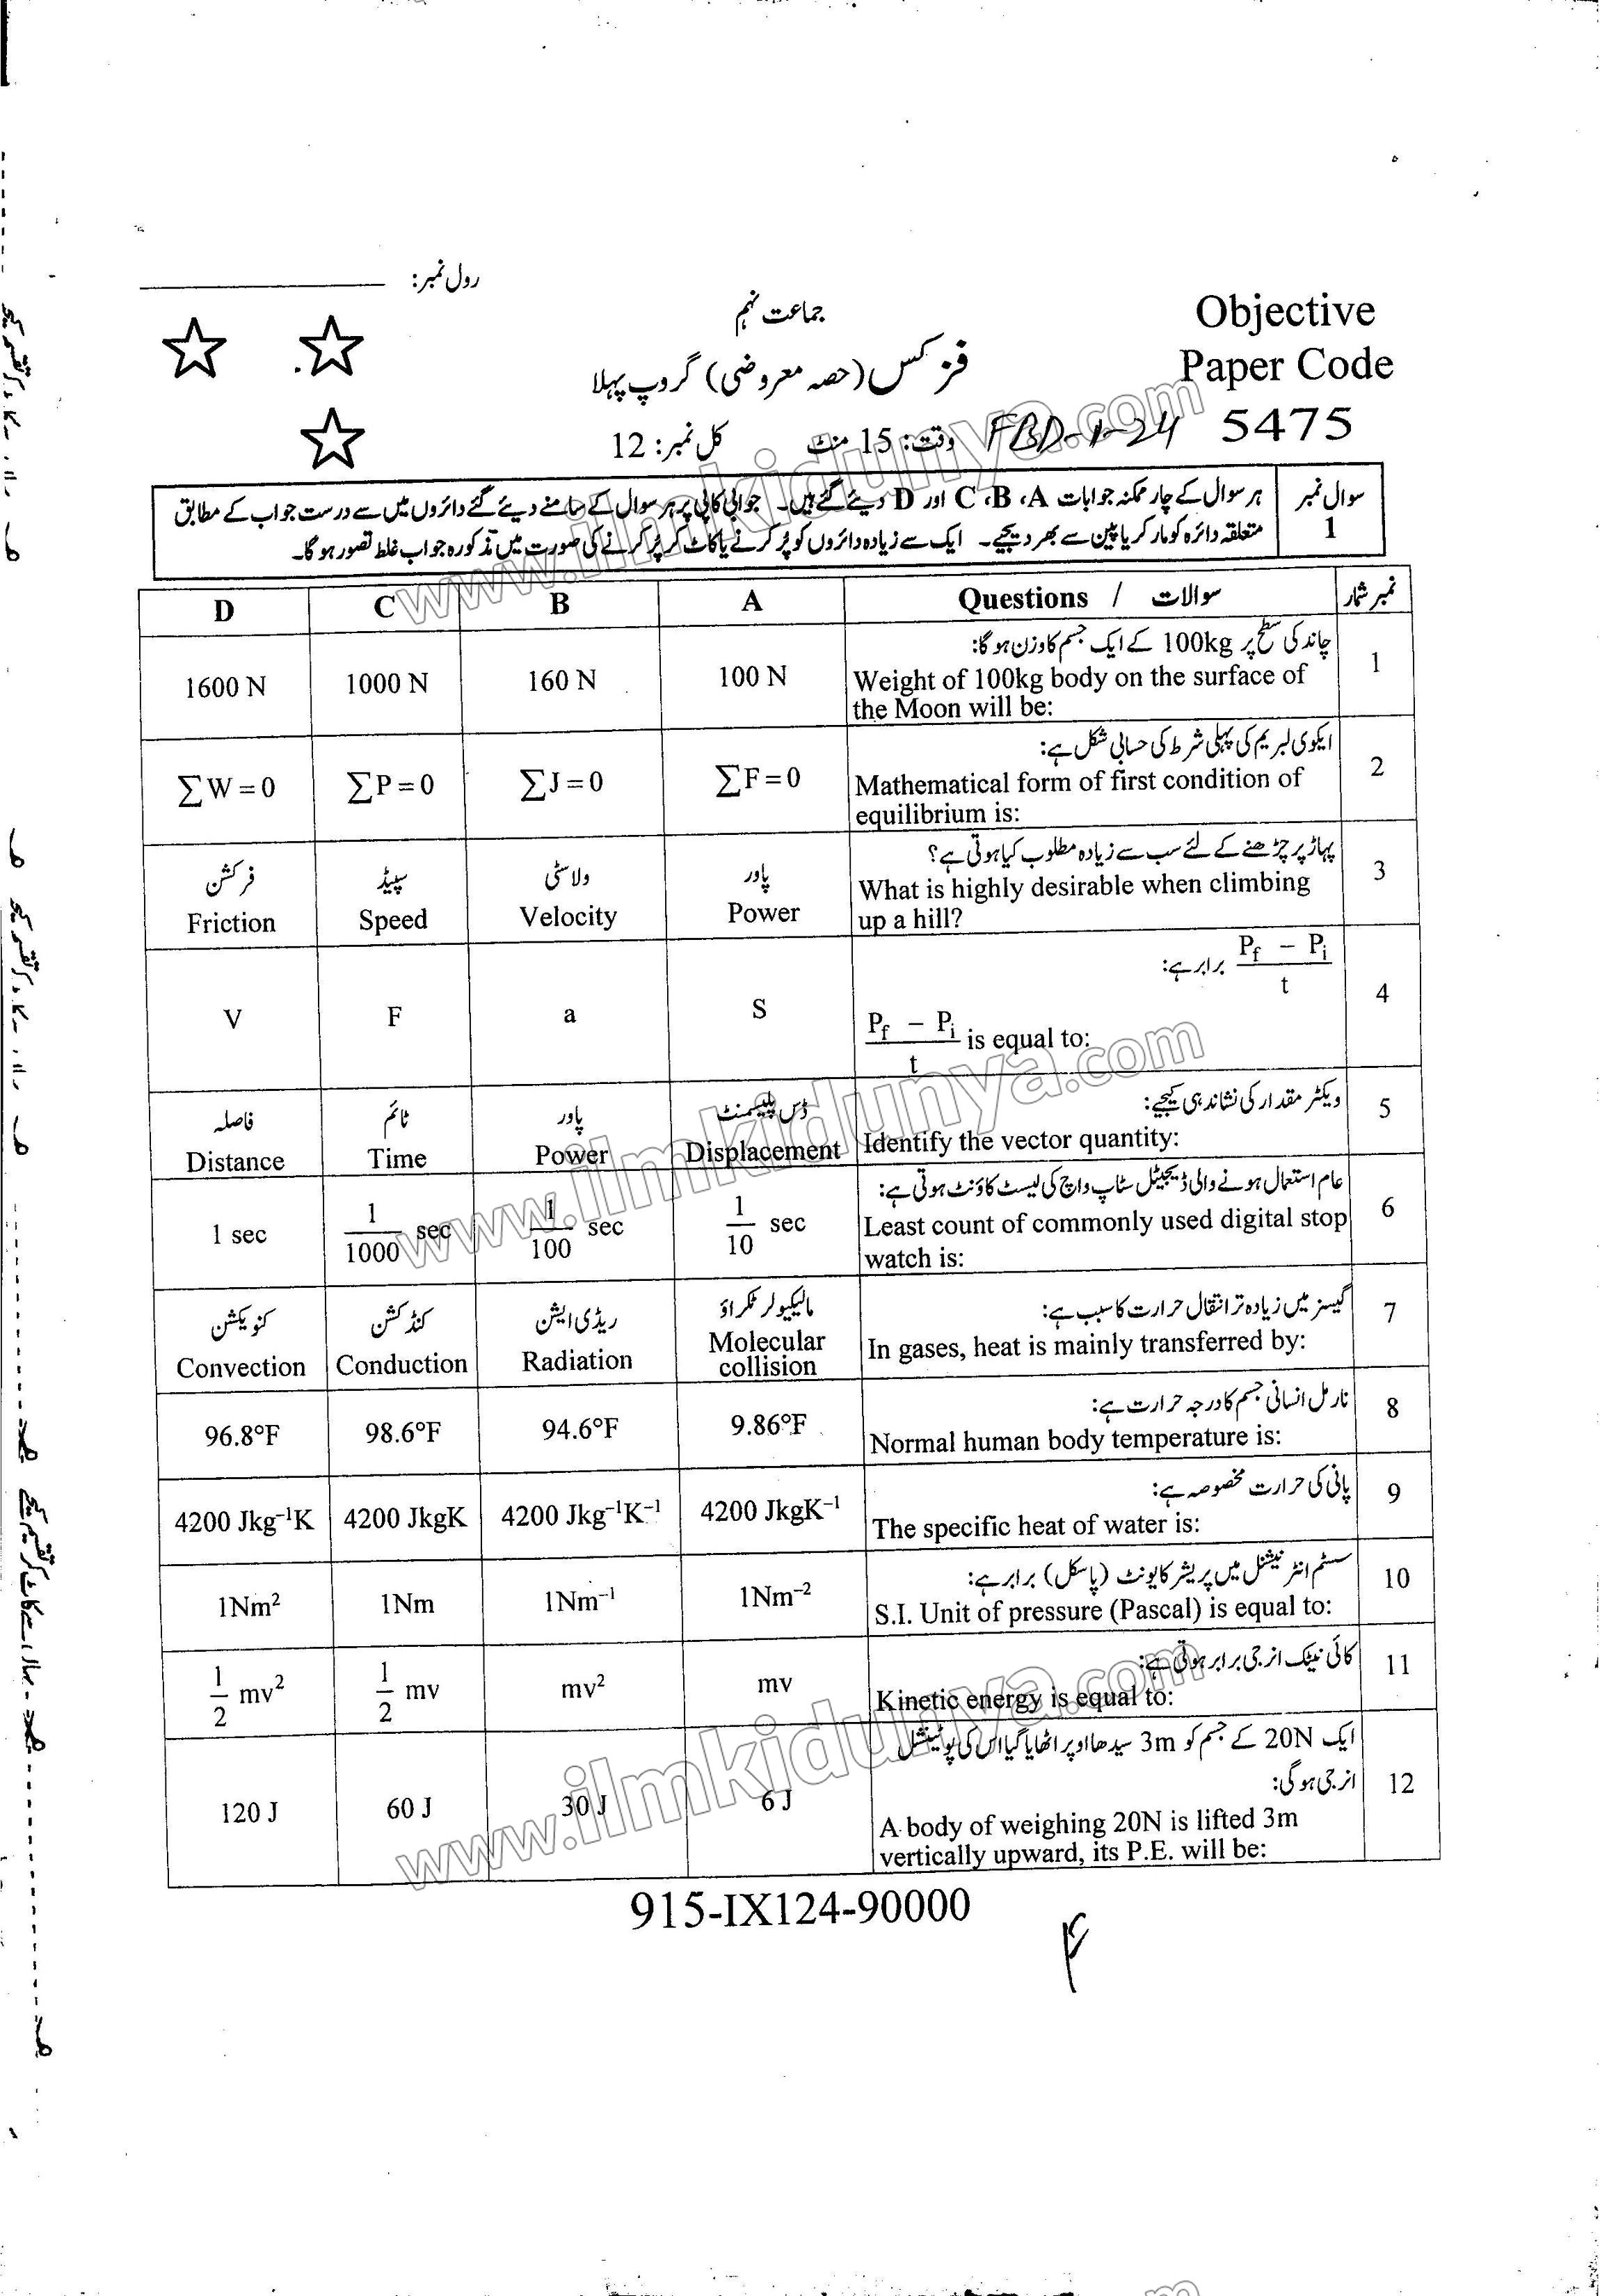 رول نمبر:
جماعت نہم
فزکس (حصہ معروضی) گروپ پہلا
وقت: 15 منٹ کل نمبر: 12
Objective
Paper Code
5475
FBD-1-24
سوال نمبر 1
ہر سوال کے چار ممکنہ جوابات A، B، C اور D دیئے گئے ہیں۔ جوابی کاپی پر ہر سوال کے سامنے دیئے گئے دائروں میں سے درست جواب کے مطابق
متعلقہ دائرہ کو مارکر یا پین سے بھر دیجیے۔ ایک سے زیادہ دائروں کو پُر کرنے یا کاٹ کر پُر کرنے کی صورت میں مذکورہ جواب غلط تصور ہوگا۔
D C B A Questions / سوالات نمبر شمار
1 چاند کی سطح پر 100kg کے ایک جسم کا وزن ہوگا:
Weight of 100kg body on the surface of
the Moon will be:
1600 N 1000 N 160 N 100 N
2 ایکوی لبریم کی پہلی شرط کی حسابی شکل ہے:
Mathematical form of first condition of
equilibrium is:
∑W=0 ∑P=0 ∑J=0 ∑F=0
3 پہاڑ پر چڑھنے کے لئے سب سے زیادہ مطلوب کیا ہوتی ہے؟
What is highly desirable when climbing
up a hill?
فرکشن سپیڈ ولاسٹی پاور
Friction Speed Velocity Power
4 (P_f − P_i)/t برابر ہے:
(P_f − P_i)/t is equal to:
V F a S
5 ویکٹر مقدار کی نشاندہی کیجیے:
Identify the vector quantity:
فاصلہ ٹائم پاور ڈس پلیسمنٹ
Distance Time Power Displacement
6 عام استعمال ہونے والی ڈیجیٹل سٹاپ واچ کی لیسٹ کاؤنٹ ہوتی ہے:
Least count of commonly used digital stop
watch is:
1 sec 1/1000 sec 1/100 sec 1/10 sec
7 گیسز میں زیادہ تر انتقال حرارت کا سبب ہے:
In gases, heat is mainly transferred by:
کنویکشن کنڈکشن ریڈی ایشن مالیکیولر ٹکراؤ
Convection Conduction Radiation Molecular collision
8 نارمل انسانی جسم کا درجہ حرارت ہے:
Normal human body temperature is:
96.8°F 98.6°F 94.6°F 9.86°F
9 پانی کی حرارت مخصوصہ ہے:
The specific heat of water is:
4200 Jkg⁻¹K 4200 JkgK 4200 Jkg⁻¹K⁻¹ 4200 JkgK⁻¹
10 سسٹم انٹرنیشنل میں پریشر کا یونٹ (پاسکل) برابر ہے:
S.I. Unit of pressure (Pascal) is equal to:
1Nm² 1Nm 1Nm⁻¹ 1Nm⁻²
11 کائی نیٹک انرجی برابر ہوتی ہے:
Kinetic energy is equal to:
1/2 mv² 1/2 mv mv² mv
12 ایک 20N کے جسم کو 3m سیدھا اوپر اٹھایا گیا اس کی پوٹینشل
انرجی ہوگی:
A body of weighing 20N is lifted 3m
vertically upward, its P.E. will be:
120 J 60 J 30 J 6 J
915-IX124-90000
www.ilmkidunya.com
www.ilmkidunya.com
www.ilmkidunya.com